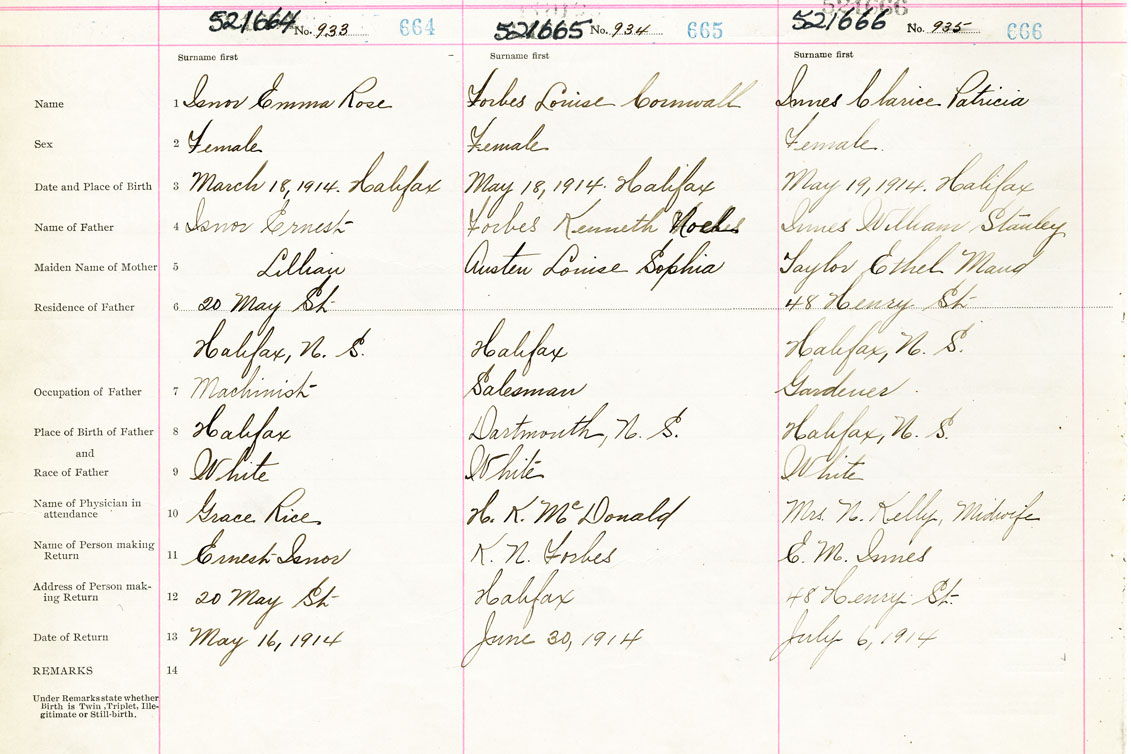 521664 No. 933 664 521665 No. 934 665 521666 No. 935 666
Surname first Surname first Surname first
Name 1 Isnor Emma Rose Forbes Louise Cornwall Innes Clarice Patricia
Sex 2 Female Female Female.
Date and Place of Birth 3 March 18, 1914. Halifax May 18, 1914. Halifax May 19, 1914. Halifax
Name of Father 4 Isnor Ernest Forbes Kenneth Innes William Stanley
Maiden Name of Mother 5 Lillian Austen Louise Sophia Taylor Ethel Maud
Residence of Father 6 20 May St 48 Henry St
Halifax, N. S. Halifax Halifax, N. S.
Occupation of Father 7 Machinist Salesman Gardener
Place of Birth of Father 8 Halifax Dartmouth, N. S. Halifax, N. S.
and
Race of Father 9 White White White
Name of Physician in
attendance 10 Grace Rice H. K. McDonald Mrs. N. Kelly, Midwife
Name of Person making
Return 11 Ernest Isnor K. N. Forbes E. M. Innes
Address of Person mak-
ing Return 12 20 May St Halifax 48 Henry St
Date of Return 13 May 16, 1914 June 30, 1914 July 6, 1914
REMARKS 14
Under Remarks state whether
Birth is Twin, Triplet, Ille-
gitimate or Still-birth.